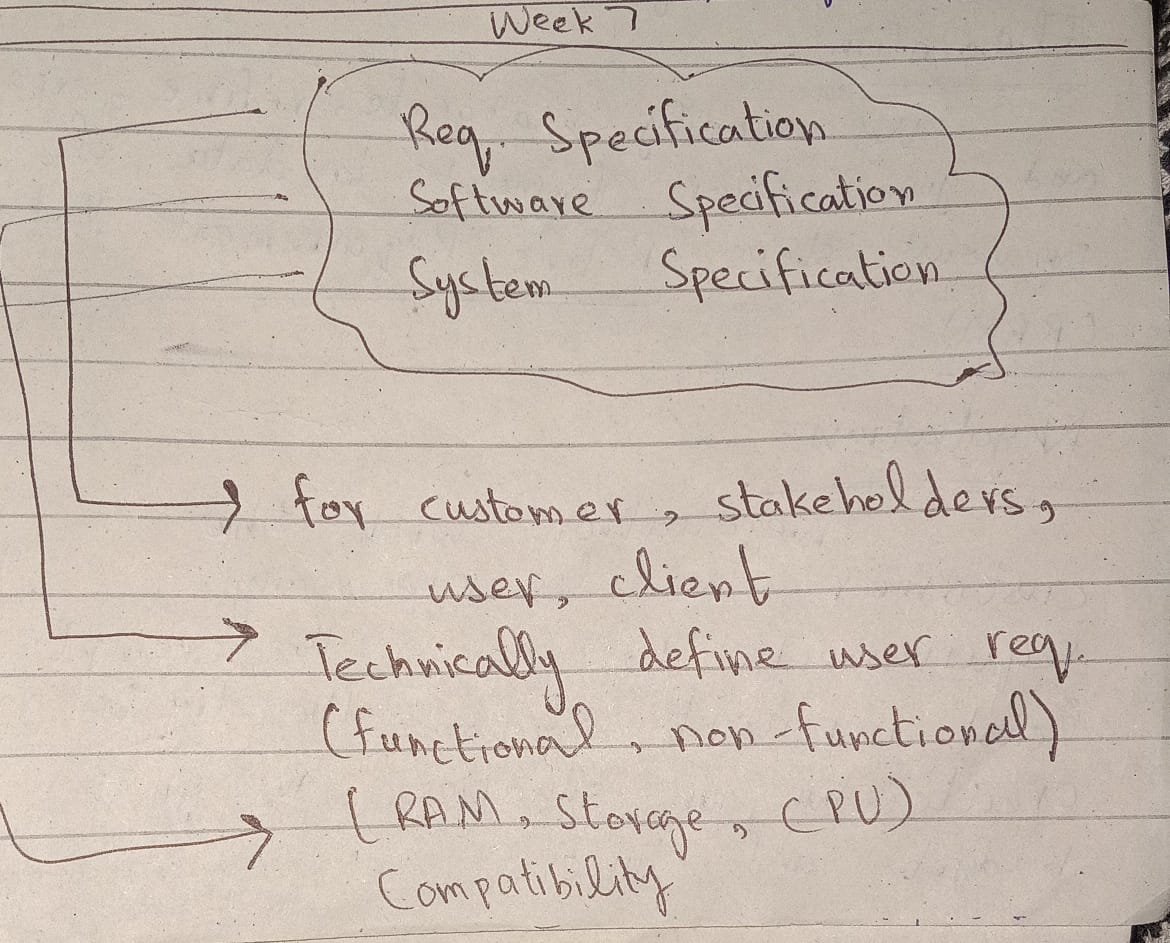 Week 7
Req. Specification
Software Specification
System Specification
for customer, stakeholders,
user, client
Technically define user req.
(functional, non-functional)
(RAM, Storage, CPU)
Compatibility